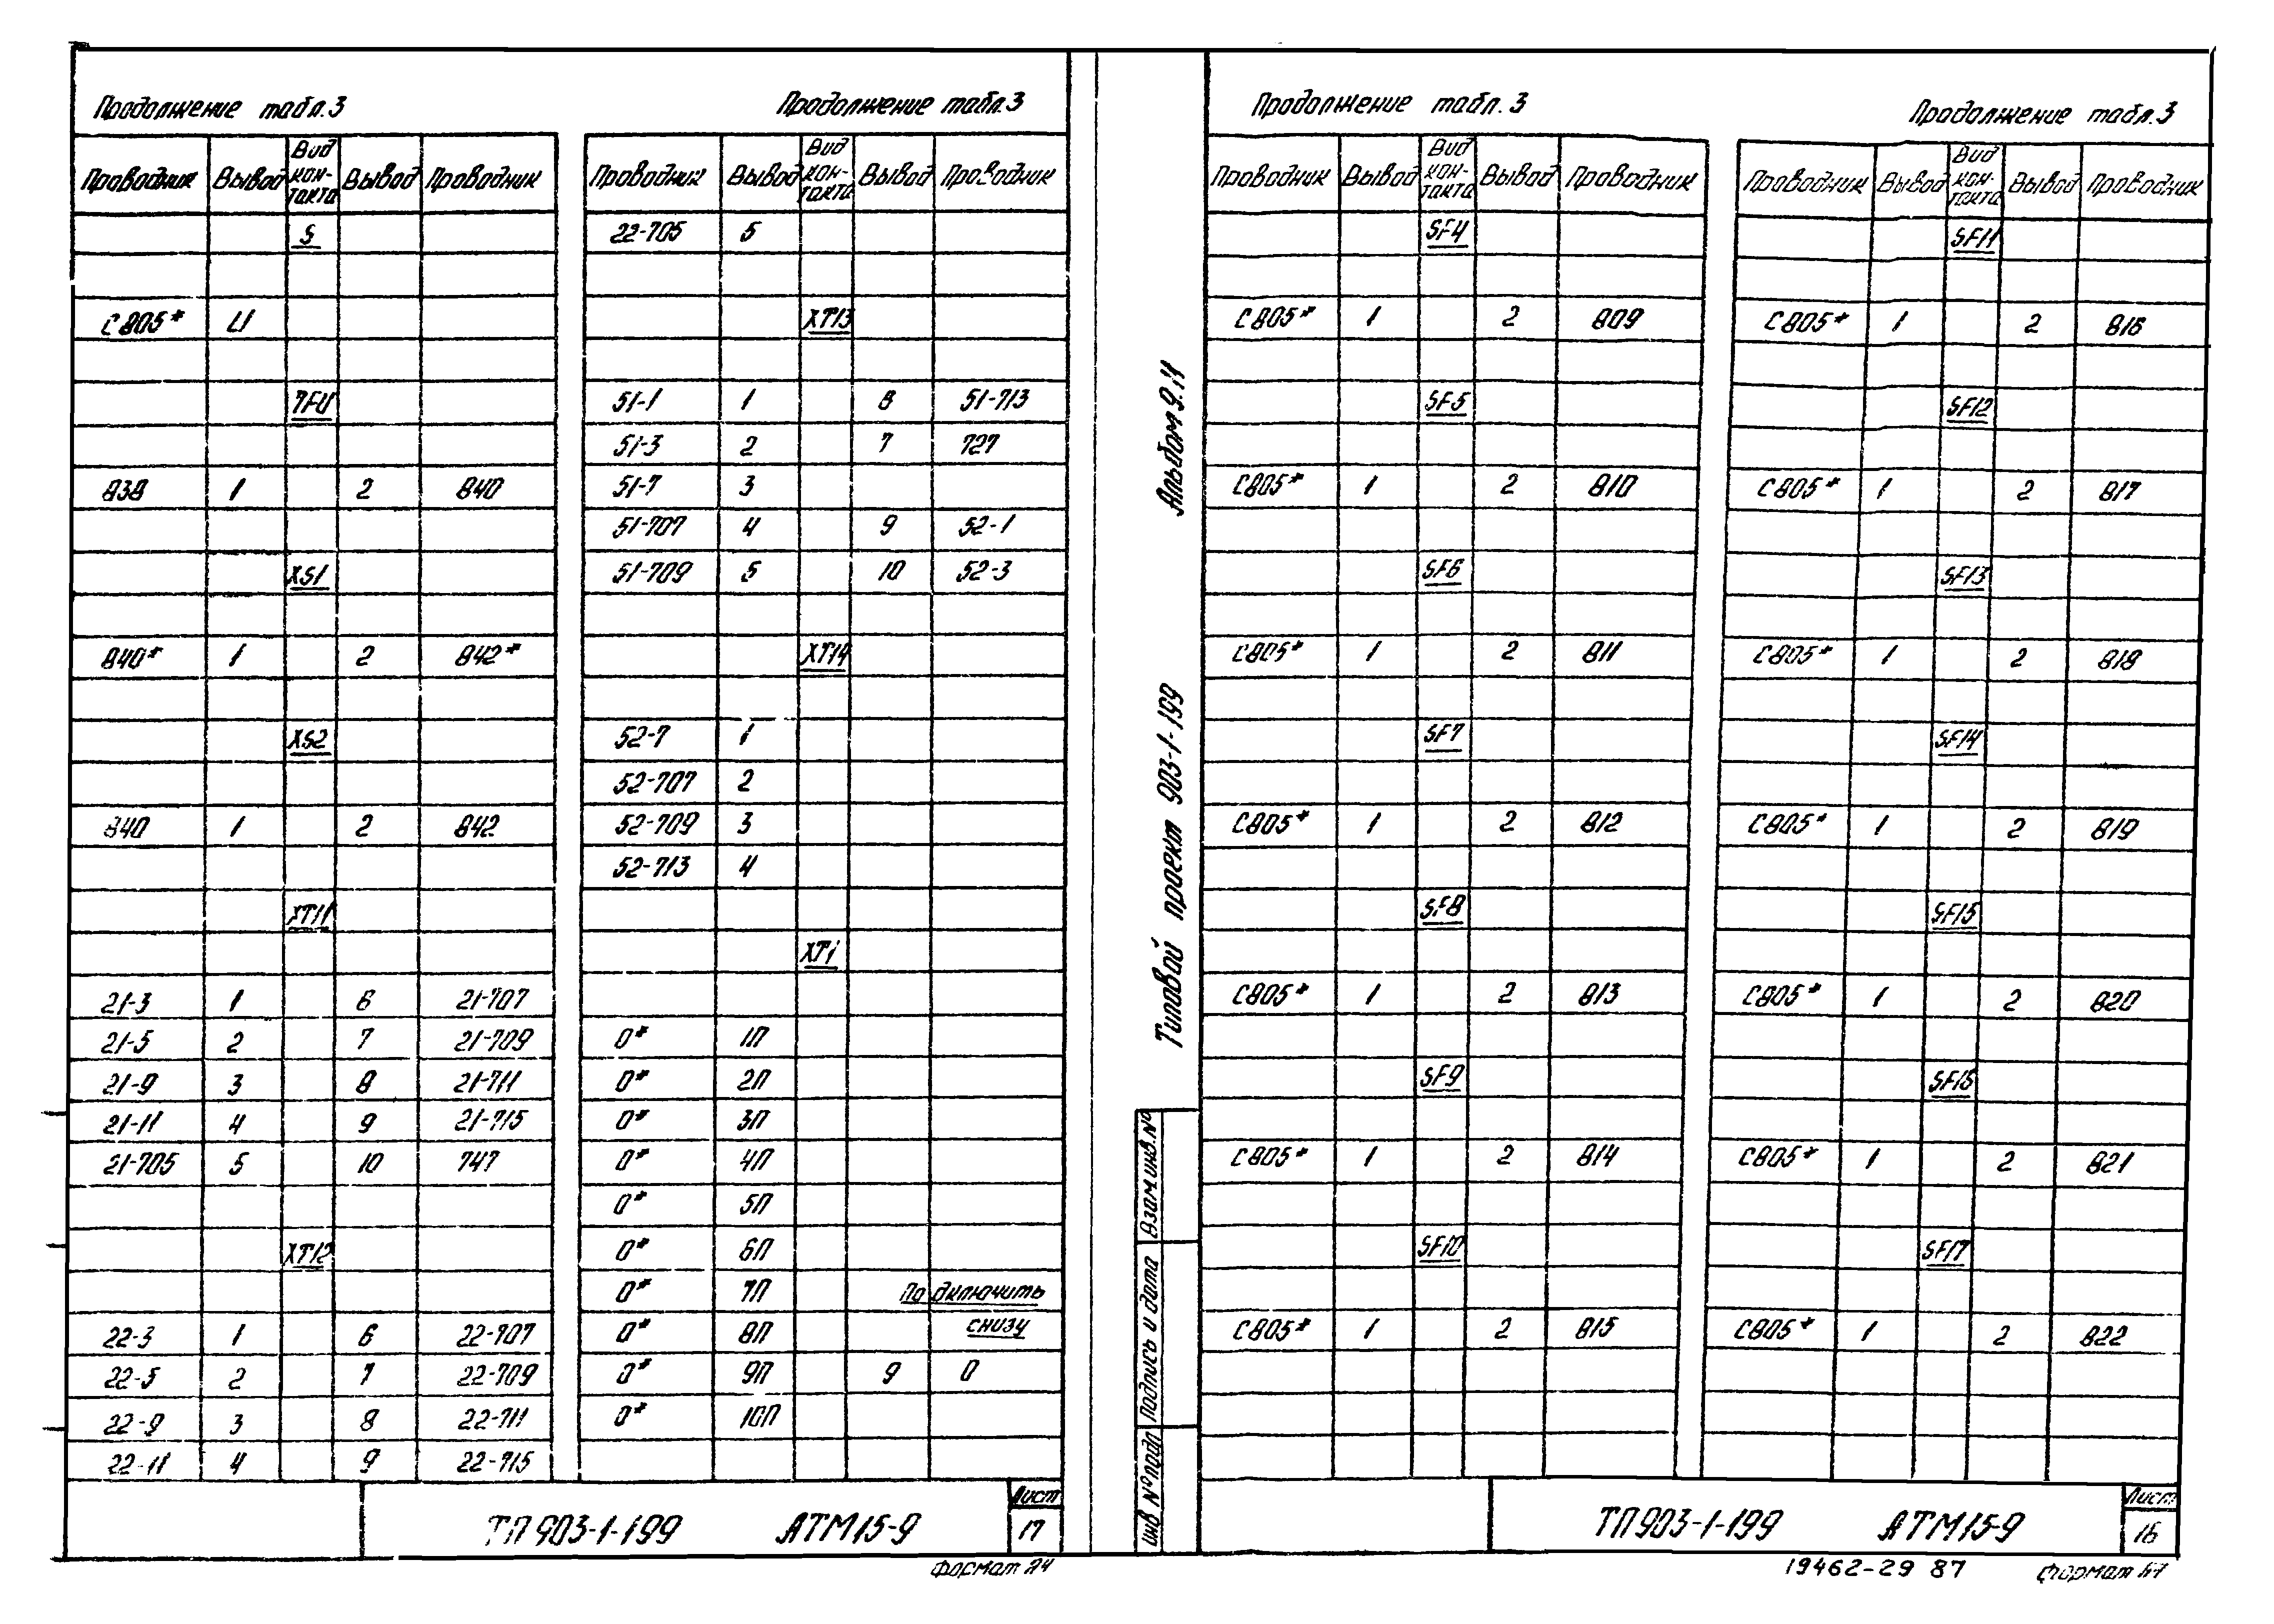 Продолжение табл.3
Проводник Вывод Вид кон-такта Вывод Проводник
S
С805* L1
7FU
838 1 2 840
XS1
840* 1 2 842*
XS2
840 1 2 842
XT11
21-3 1 6 21-707
21-5 2 7 21-709
21-9 3 8 21-711
21-11 4 9 21-715
21-705 5 10 747
XT12
22-3 1 6 22-707
22-5 2 7 22-709
22-9 3 8 22-711
22-11 4 9 22-715
Продолжение табл.3
Проводник Вывод Вид кон-такта Вывод Проводник
22-705 5
XT13
51-1 1 8 51-713
51-3 2 7 727
51-7 3
51-707 4 9 52-1
51-709 5 10 52-3
XT14
52-7 1
52-707 2
52-709 3
52-713 4
XT1
0* 1П
0* 2П
0* 3П
0* 4П
0* 5П
0* 6П
0* 7П Подключить
0* 8П снизу
0* 9П 9 0
0* 10П
ТП903-1-199 АТМ15-9
Лист
17
Формат А4
Типовой проект 903-1-199 Альбом 9.11
Инв № подл Подпись и дата Взам инв. №
Продолжение табл. 3
Проводник Вывод Вид кон-такта Вывод Проводник
SF4
С805* 1 2 809
SF5
С805* 1 2 810
SF6
С805* 1 2 811
SF7
С805* 1 2 812
SF8
С805* 1 2 813
SF9
С805* 1 2 814
SF10
С805* 1 2 815
Продолжение табл.3
Проводник Вывод Вид кон-такта Вывод Проводник
SF11
С805* 1 2 816
SF12
С805* 1 2 817
SF13
С805* 1 2 818
SF14
С805* 1 2 819
SF15
С805* 1 2 820
SF16
С805* 1 2 821
SF17
С805* 1 2 822
ТП903-1-199 АТМ15-9
Лист
16
19462-29 87
Формат А4